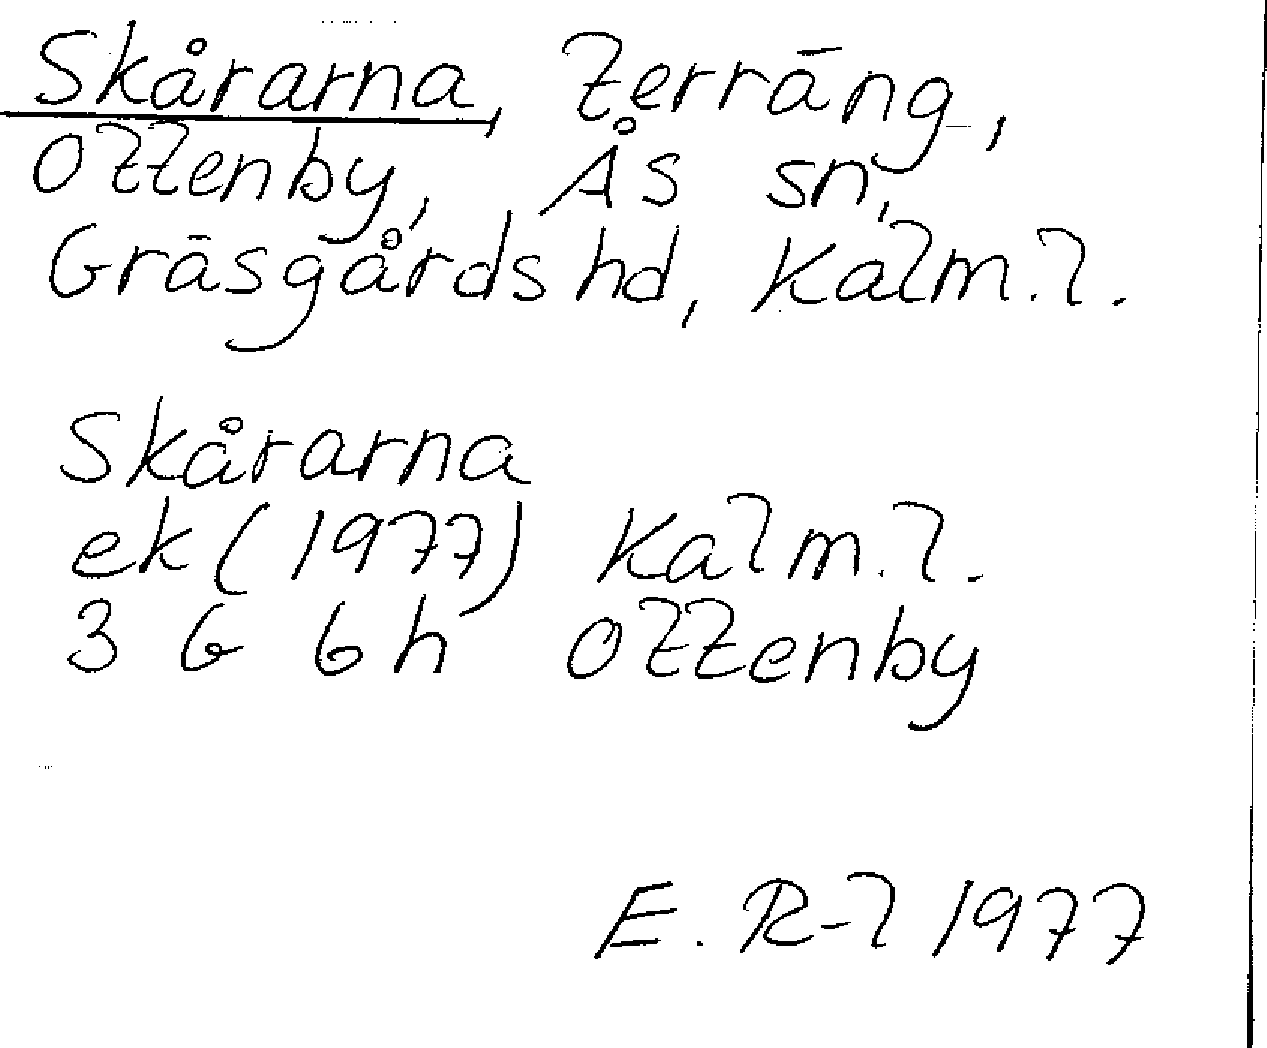 Skårarna, terräng,
Ottenby, Ås sn,
Gräsgårds hd, Kalm. l.
Skårarna
ek (1977) Kalm. l.
3 G 6 h Ottenby
E. R-l 1977